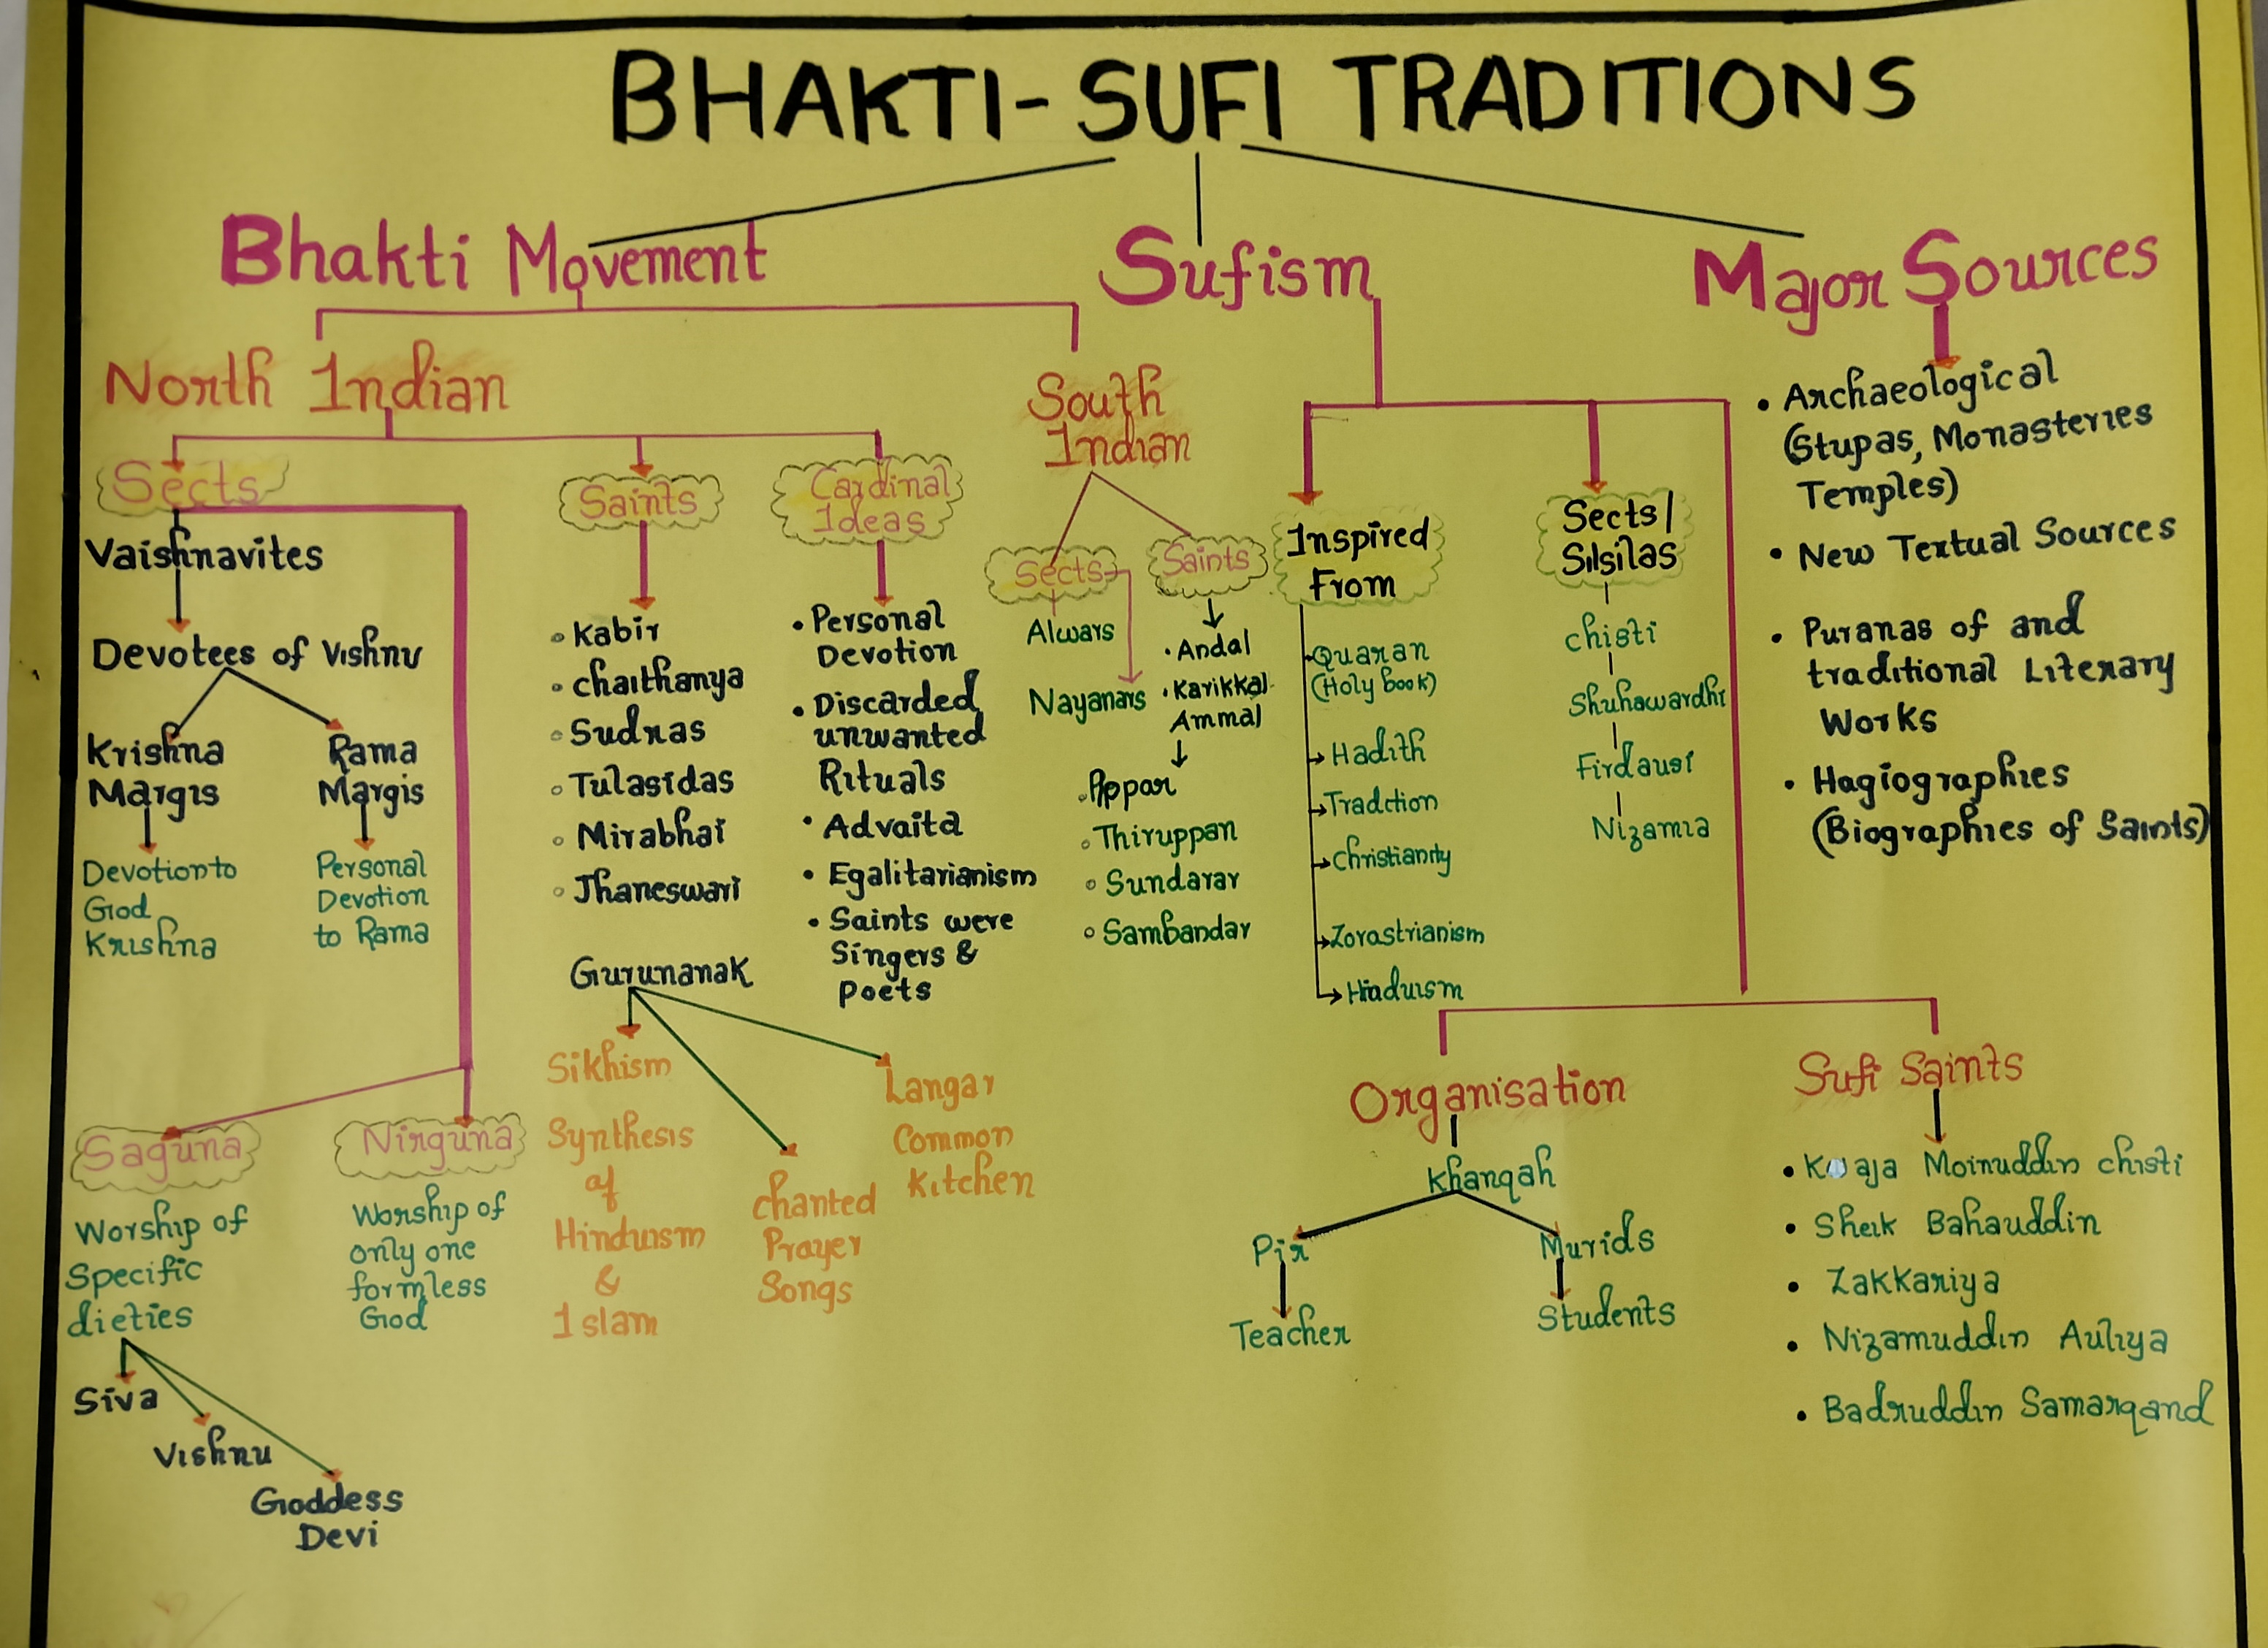 BHAKTI-SUFI TRADITIONS
Bhakti Movement
North Indian
Sects
Vaishnavites
Devotees of Vishnu
Krishna
Margis
Devotion to
God
Krishna
Rama
Margis
Personal
Devotion
to Rama
Saguna
Worship of
Specific
dieties
Siva
Vishnu
Goddess
Devi
Nirguna
Worship of
only one
formless
God
Saints
• Kabir
• Chaithanya
• Sudras
• Tulasidas
• Mirabhai
• Jhaneswari
Gurunanak
Sikhism
Synthesis
of
Hinduism
&
Islam
chanted
Prayer
Songs
Langar
Common
Kitchen
Cardinal
Ideas
• Personal
Devotion
• Discarded
unwanted
Rituals
• Advaita
• Egalitarianism
• Saints were
Singers &
Poets
South
Indian
Sects
Alwars
Nayanars
Saints
• Andal
• Karikkal
Ammal
• Appar
• Thiruppan
• Sundarar
• Sambandar
Sufism
Inspired
From
Quaran
(Holy book)
Hadith
Tradction
Christianity
Zorastrianism
Hinduism
Sects/
Silsilas
chisti
Shuhawardhi
Firdausi
Nizamia
Organisation
Khanqah
Pir
Teacher
Murids
Students
Sufi Saints
• Kwaja Moinuddin chisti
• Sheik Bahauddin
• Zakkariya
• Nizamuddin Auliya
• Badruddin Samarqand
Major Sources
• Archaeological
(Stupas, Monasteries
Temples)
• New Textual Sources
• Puranas of and
traditional Literary
Works
• Hagiographies
(Biographies of Saints)